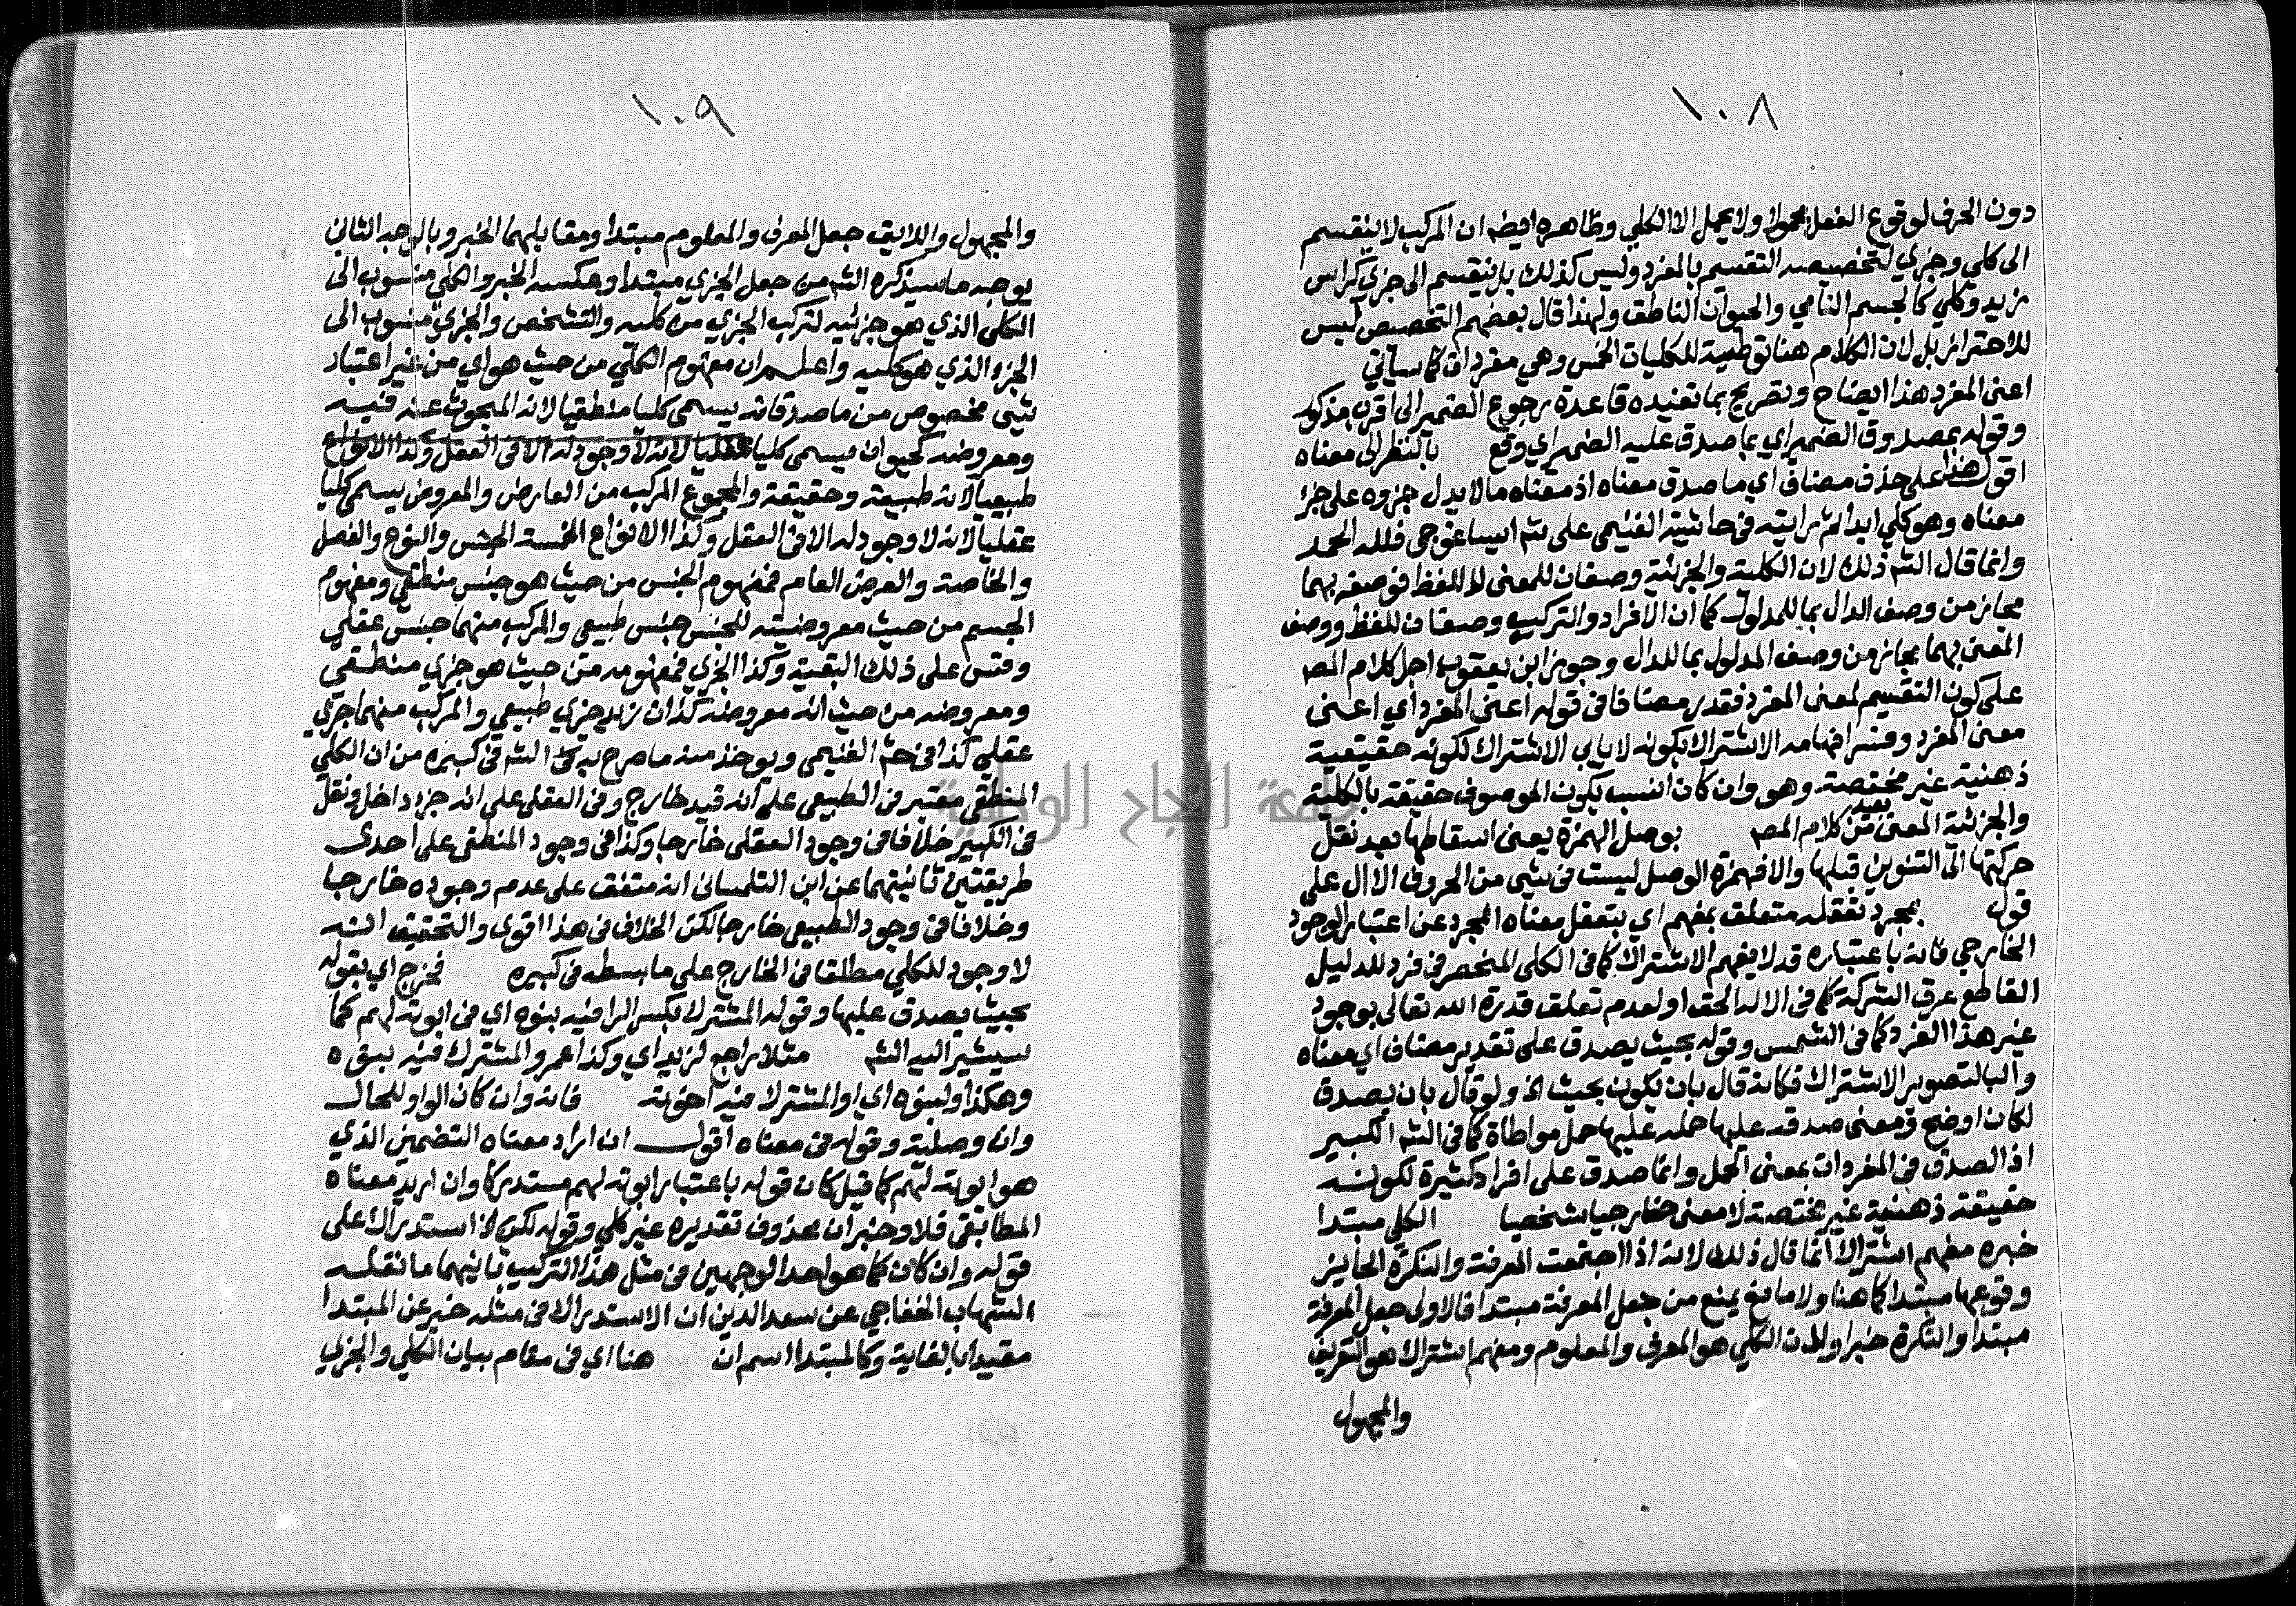 ١٠٨
دون الحرف لوقوع الفعل محمولا ولا يحمل الا الكلي وظاهره ايضا ان المركب لا ينقسم
الى كلي وجزي لتخصيصه التقسيم بالمفرد وليس كذلك بل ينقسم الى جزي كراس
زيد وكلي كالجسم النامي والحيوان الناطق ولهذا قال بعضهم التخصيص ليس
للاحتراز بل لان الكلام هنا توطية للكليات الخمس وهي مفردات كما سياتي
اعنى المفرد هذا ايضاح وتصريح بما تفيده قاعدة رجوع الضمير الى اقرب مذكور
وقوله بمصدوق الضمير اي بما صدق عليه الضمير اي وقع بالنظر الى معناه
اقول هذا على حذف مضاف اي ما صدق معناه اذ معناه ما لا يدل جزوه على جز
معناه وهو كلي ابدا ثم رايته في حاشية الغنيمى على شم ايساغوجى فلله الحمد
وانما قال الشم ذلك لان الكلية والجزئية وصفان للمعنى لا للفظ فوصفه بهما
مجاز من وصف الدال بما للمدلول كما ان الافراد والتركيب وصفان للفظ ووصف
المعنى بهما مجاز من وصف المدلول بما للدال وجوز ابن يعقوب اجل كلام المص
على كون التقسيم لمعنى المفرد فقدر مضافا في قوله اعنى المفرد اي اعنى
معنى المفرد وفسر افهامه الاشتراك بكونه لا يابى الاشتراك لكونه حقيقية
ذهنية غير مختصة وهو وان كان انسب بكون الموصوف حقيقة بالكلية
والجزئية المعنى بعيد من كلام المص بوصل الهمزة يعنى اسقاطها بعد نقل
حركتها الى التنوين قبلها والا فهمزة الوصل ليست في شى من الحروف الا ال على
قول بمجرد تعقله متعلق بمفهم اي بتعقل معناه المجرد عن اعتبار الوجود
الخارجي فانه باعتباره قد لا يفهم الاشتراك كما في الكلى المنحصر في فرد للدليل
القاطع عرق الشركة كما في الاله الحق او لعدم تعلق قدرة الله تعالى بوجود
غير هذا الفرد كما في الشمس وقوله بحيث يصدق على تقدير مضاف اي معناه
والبا لتصوير الاشتراك فكانه قال بان يكون بحيث الخ ولو قال بان يصدق
لكان اوضح ومعنى صدقه عليها حمله عليها حمل مواطاة كما في الشم الكبير
اذ الصدق في المفردات بمعنى الحمل وانما صدق على افراد كثيرة لكونه
حقيقة ذهنية غير مختصة لا معنى خارجيا شخصيا الكلي مبتدا
خبره مفهم اشتراك انما قال ذلك لانه اذا اجتمعت المعرفة والنكرة الجائز
وقوعها مبتدا كما هنا ولا مانع يمنع من جعل المعرفة مبتدا فالاولى جعل المعرفة
مبتدا والنكرة خبرا ولان الكلي هو المعرف والمعلوم ومفهم اشتراك هو التعريف
والمجهول
١٠٩
والمجهول واللايق جعل المعرف والمعلوم مبتدا ومقابلهما الخبر وبالوجه الثاني
يوجه ما سيذكره الشم من جعل الجزي مبتدا وعكسه الخبر والكلي منسوب الى
الكلى الذي هو جزئيه لتركب الجزي من كليه والتشخص والجزي منسوب الى
الجزء الذي هو كليه واعلم ان مفهوم الكلي من حيث هو اي من غير اعتبار
شى مخصوص من ما صدقاته يسمى كليا منطقيا لانه المبحوث عنه فيه
ومعروضه كحيوان يسمى كليا عقليا لانه لا وجود له الا في العقل وكذا الانواع
طبيعيا لانه طبيعة وحقيقة والمجموع المركب من العارض والمعروض يسمى كليا
عقليا لانه لا وجود له الا في العقل وكذا الانواع الخمسة الجنس والنوع والفصل
والخاصة والعرض العام فمفهوم الجنس من حيث هو جنس منطقي ومفهوم
الجسم من حيث معروضيته للجنس جنس طبيعي والمركب منهما جنس عقلي
وقس على ذلك البقية وكذا الجزي فمفهومه من حيث هو جزي منطقي
ومعروضه من حيث انه معروضه كذات زيد جزي طبيعي والمركب منهما جزي
عقلي كذا في حشم الغنيمى ويوخذ منه ما صرح به الشم في كبيره من ان الكلي
المنطقي معتبر في الطبيعى على انه قيد خارج وفي العقلى على انه جزء داخل ونقل
في الكبير خلافا في وجود العقلى خارجا وكذا في وجود المنطقى على احدى
طريقتين ثانيتهما عن ابن التلمسانى انه متفق على عدم وجوده خارجا
وخلافا في وجود الطبيعى خارجا لكن الخلاف في هذا اقوى والتحقيق انه
لا وجود للكلي مطلقا في الخارج على ما بسطه في كبيره فخرج اي بقوله
بحيث يصدق عليها وقوله المشترك بكسر الرا فيه بنوه اي في ابوته لهم كما
سيشير اليه الشم مثلا راجع لزيد اي وكذا عمرو المشترك فيه بنوه
وهكذا او لبنوه اي او المشترك فيه اخوته فانه وان كان الواو للحال
وان وصلية وقوله في معناه اقول ان اراد معناه التضمنى الذي
هو ابوته لهم كما قيل كان قوله باعتبار ابوته لهم مستدركا وان اريد معناه
المطابقى فلا وخبر ان محذوف تقديره غير كلي وقوله لكن الخ استدراك على
قوله وان كان كما هو احد الوجهين في مثل هذا التركيب ثانيهما ما نقله
الشهاب الخفاجي عن سعد الدين ان الاستدراك في مثله خبر عن المبتدا
مقيدا بالغاية وكالمبتدا اسم ان هنا اي في مقام بيان الكلي والجزي
جامعة النجاح الوطنية